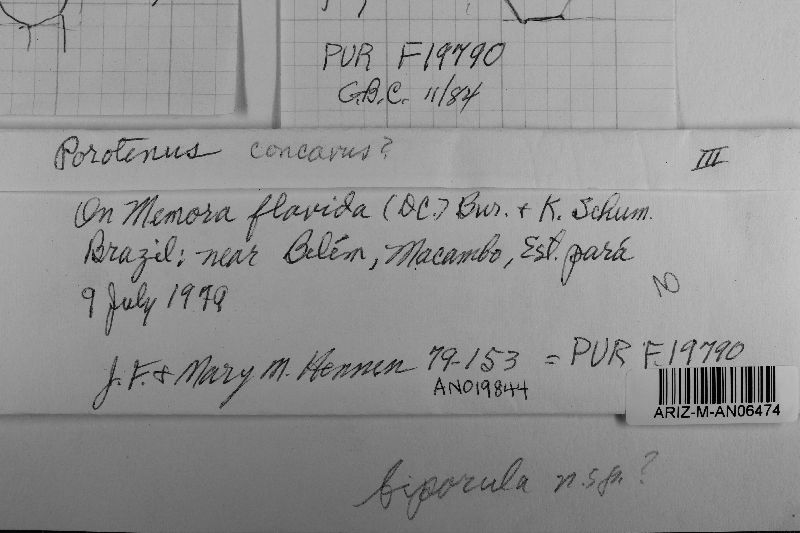 PUR F19790
G.B.C. 11/84
Porotenus concavus?
III
On Memora flavida (DC.) Bur. + K. Schum.
Brazil: near Belém, Macambo, Est. pará
9 July 1979
J. F. + Mary M. Hennen 79-153 = PUR F19790
AN019844
ARIZ-M-AN06474
biporula n.sp.?